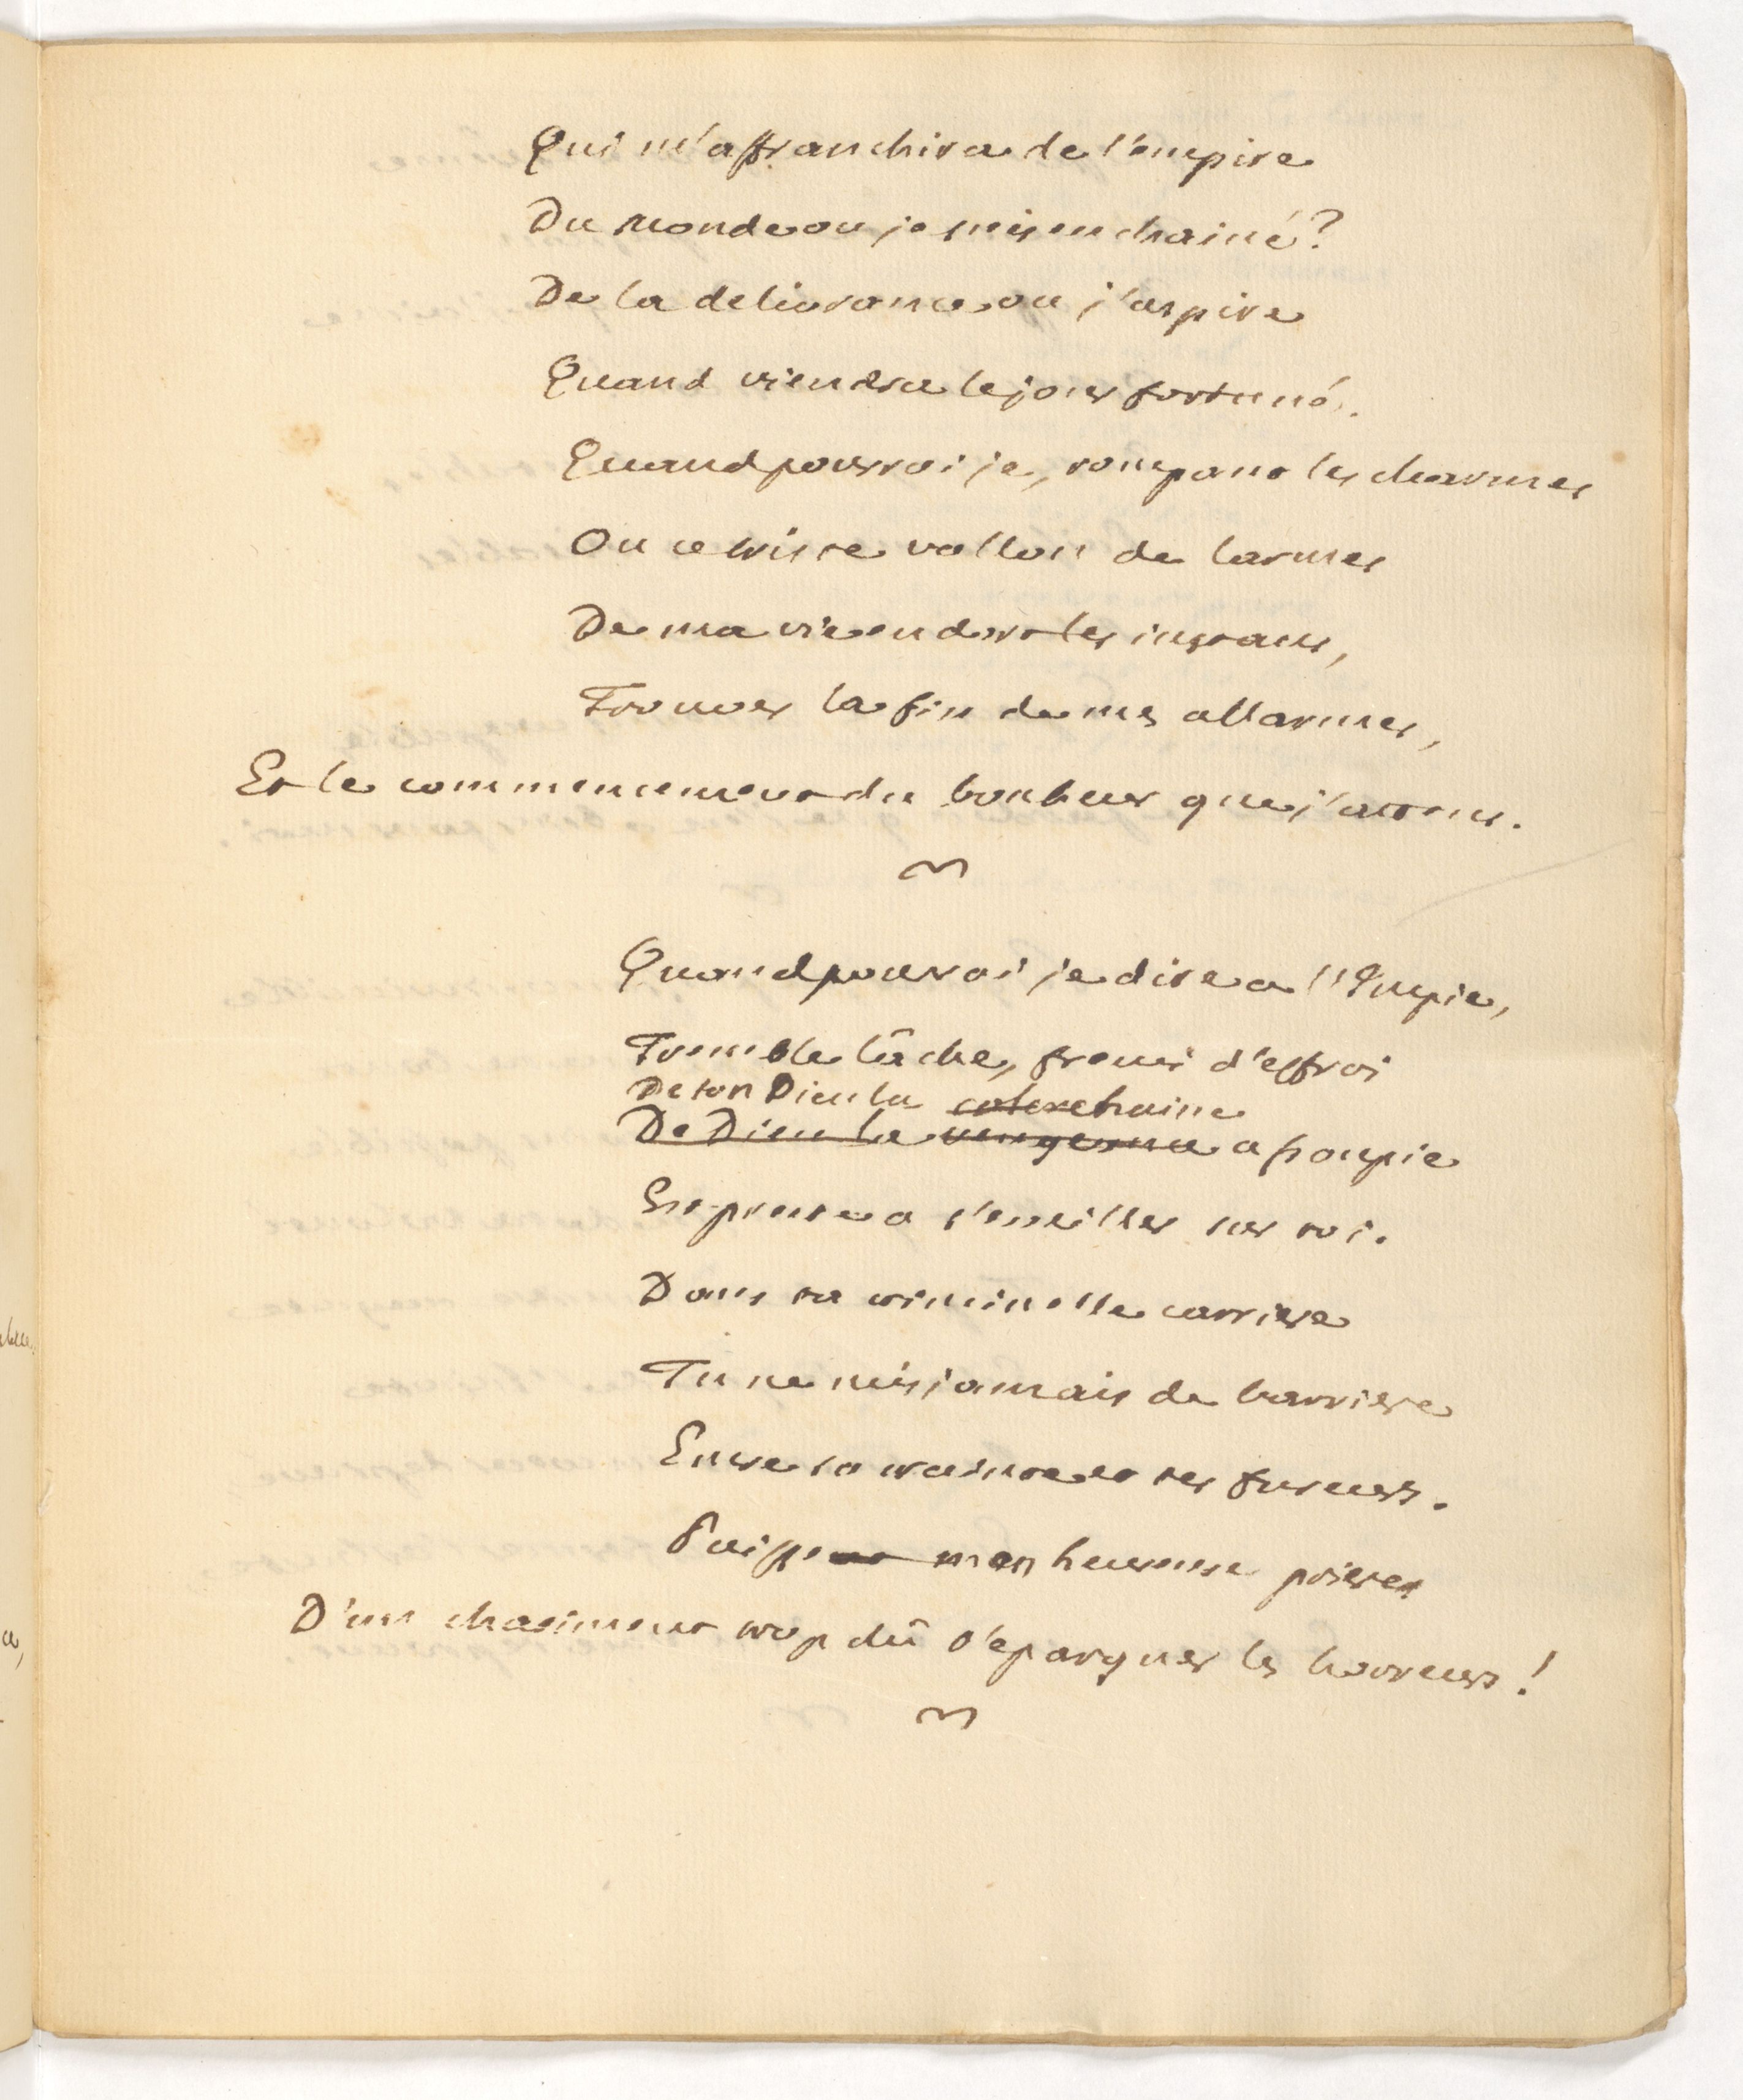 Qui m'affranchira de l'empire
Du monde ou je suis enchainé?
De la delivrance ou j'aspire
Quand viendra le jour fortuné.
Quand pourrai je, rompant les charmes
Ou ce triste vallon de larmes
De ma vie endort les instans,
Trouver la fin de mes allarmes,
Et le commencement du bonheur que j'attens.
Quand pourrai je dire a l'Impie,
Tremble lâche, fremi d'effroi
De ton Dieu la colere haine
De Dieu la vengeance assoupie
Est prete a s'eveiller sur toi.
Dans ta criminelle carriere
Tu ne mis jamais de barriere
Entre sa crainte et tes fureurs.
Puisse mon heureuse priere
D'un chatiment trop dû t'epargner les horreurs!